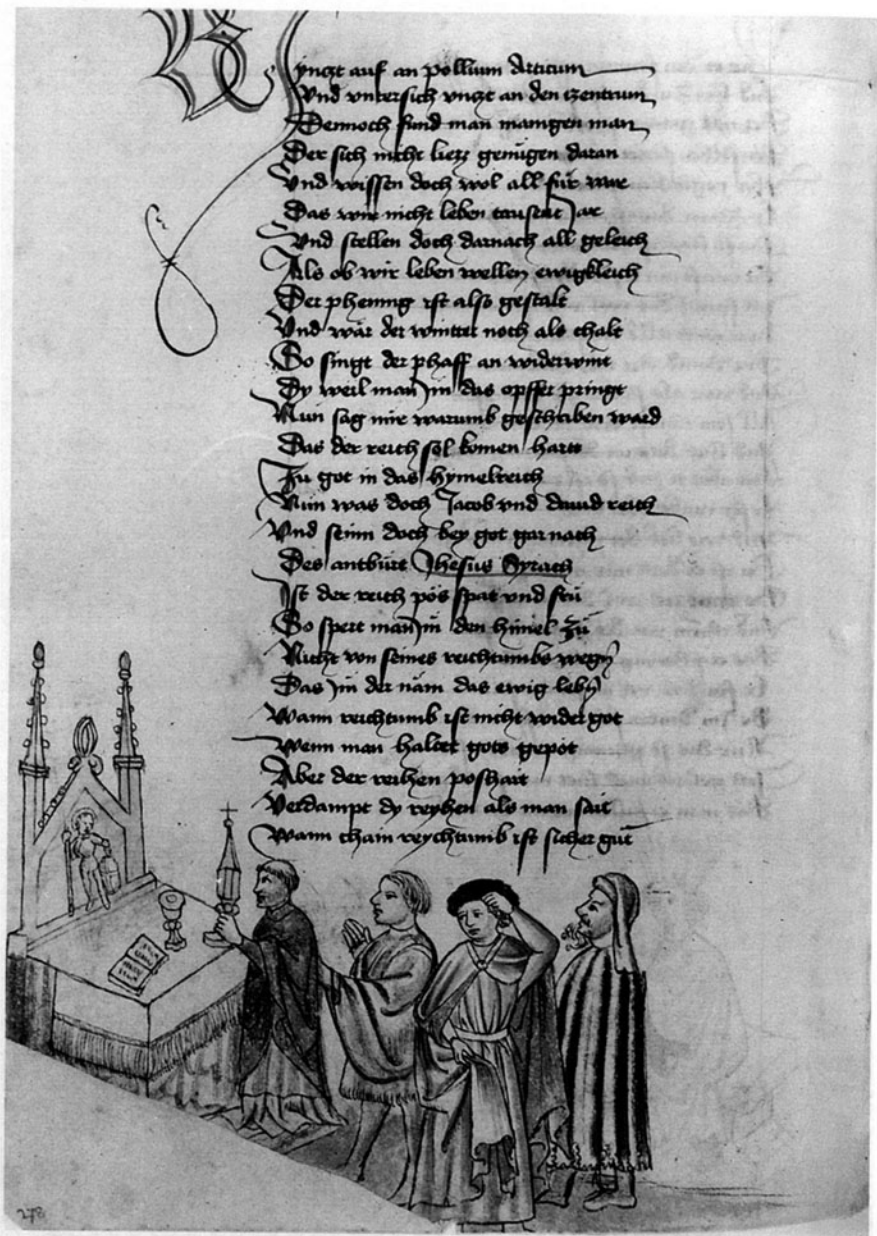 Unczt auf an pollium Articum
Vnd vntersich vnczt an den czentrum
Dennoch fund man manigen man
Der sich nicht liezz genugen daran
Vnd wissen doch wol all für war
Das wir nicht leben tausent Jar
Vnd stellen doch darnach all geleich
Als ob wir leben wellen ewigkleich
Der phennig ist also gestalt
Vnd wär der wintter noch als chalt
So singt der phaff an widerwint
Dy weil man Jm das opffer pringt
Nun sag mir warumb geschriben ward
Das der reich sol komen hartt
Zu got in das hymelreich
Nun was doch Jacob vnd dauid reich
Vnd seinn doch bey got gar nach
Des antburt Jhesus Syrach
Ist der reich pös spat vnd frü
So spert man Jm den himel zü
Nicht von seines reichtumbs wegn
Das Jm der näm das ewig lebn
Wann reichtumb ist nicht wider got
Wenn man haltet gots gepot
Aber der reihen poshait
Verdampt dy reyhen als man sait
Wann chain reychtumb ist sicher gut
278